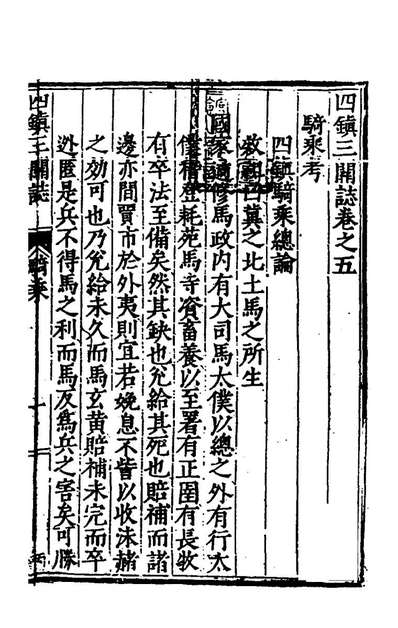 四鎮三關誌卷之五
騎乘考
四鎮騎乘總論
敘曰冀之北土馬之所生
國家慎修馬政內有大司馬太僕以總之外有行太
僕稽登耗苑馬寺資畜養以至署有正圉有長牧
有卒法至備矣然其缺也兌給其死也賠補而諸
邊亦間買市於外夷則宜若娩息不訾以收沫赭
之効可也乃兌給未久而馬玄黃賠補未完而卒
逃匿是兵不得馬之利而馬反爲兵之害矣可勝
四鎮三關誌
騎乘
一